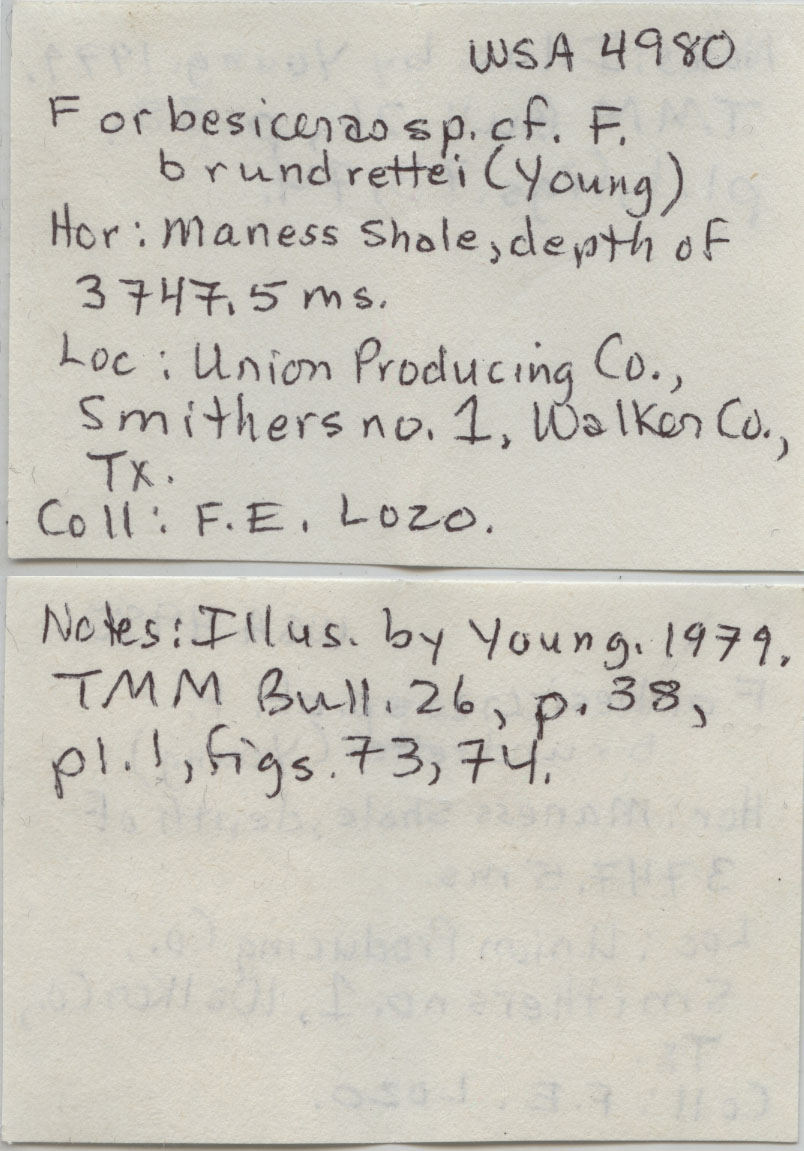 WSA 4980
Forbesiceras sp. cf. F.
brundrettei (Young)
Hor: Maness Shale, depth of
3747.5 ms.
Loc: Union Producing Co.,
Smithers no. 1, Walker Co.,
Tx.
Coll: F.E. Lozo.
Notes: Illus. by Young. 1979.
TMM Bull. 26, p. 38,
pl. 1, figs. 73, 74.